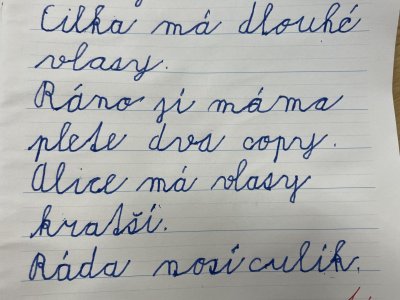 Cilka má dlouhé
vlasy.
Ráno ji máma
plete dva copy.
Alice má vlasy
kratší.
Ráda nosí culík.